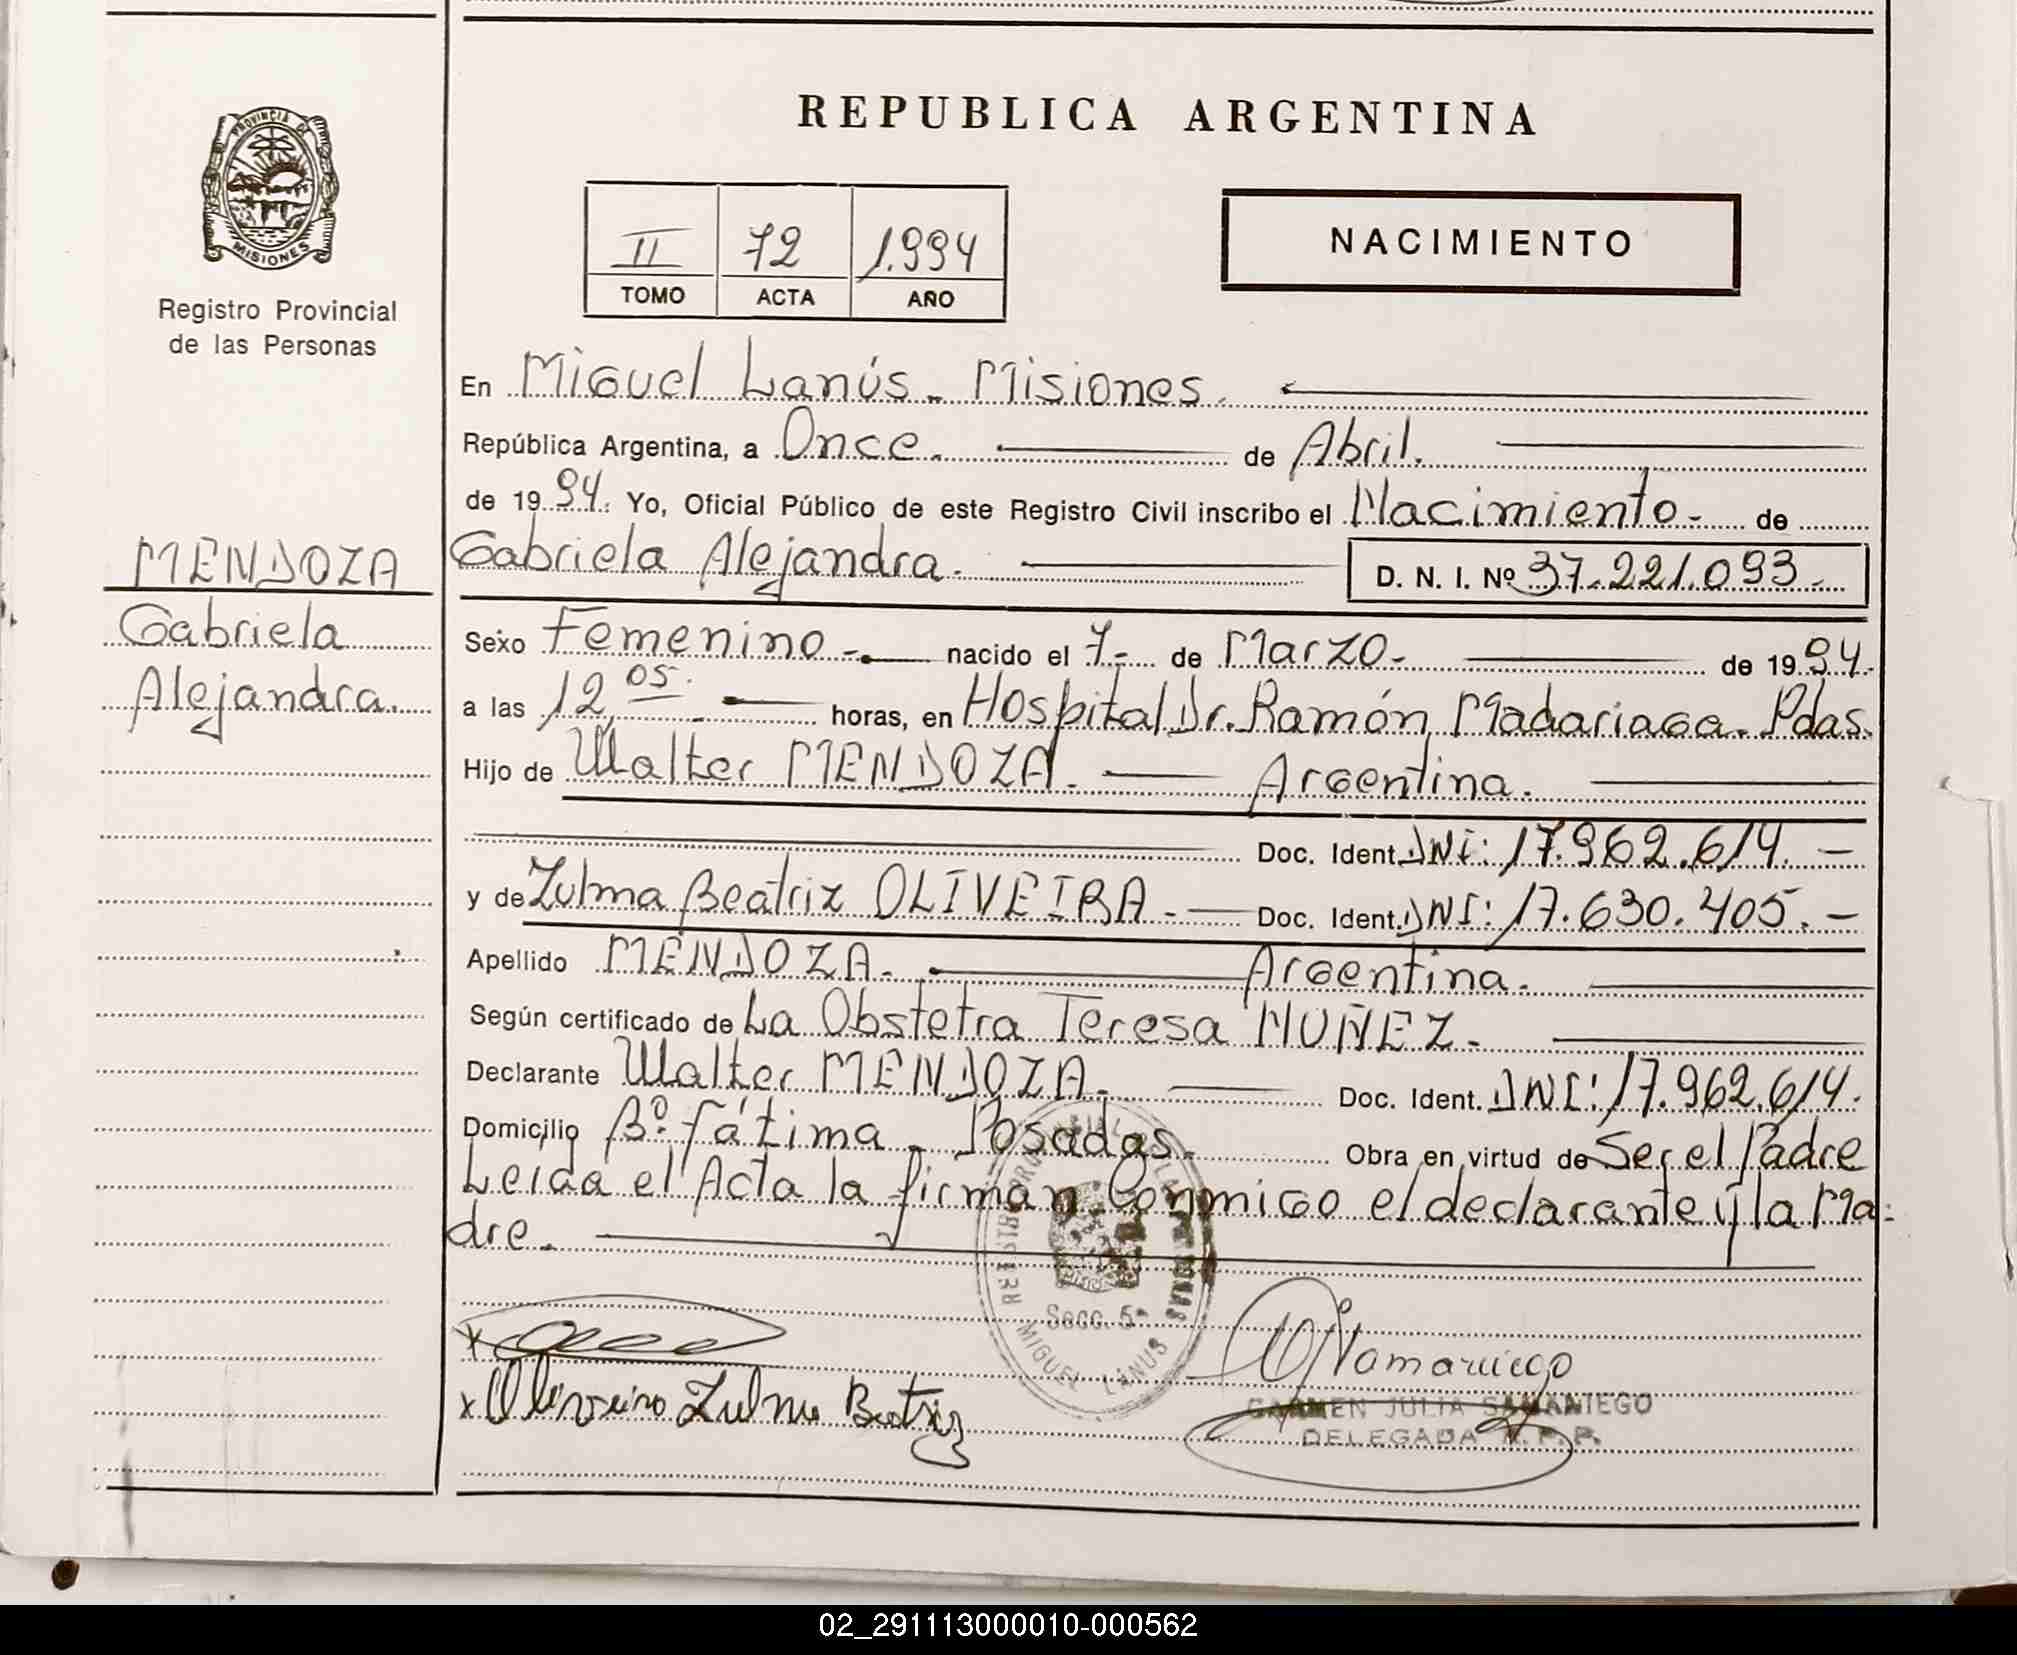 REPUBLICA ARGENTINA
PROVINCIA DE
MISIONES
Registro Provincial
de las Personas
II 72 1.994
TOMO ACTA AÑO
NACIMIENTO
En Miguel Lanús. Misiones.
República Argentina, a Once. de Abril.
de 19 94. Yo, Oficial Público de este Registro Civil inscribo el Nacimiento. de
MENDOZA
Gabriela
Alejandra.
Gabriela Alejandra. D. N. I. Nº 37.221.093.-
Sexo Femenino-. nacido el 7- de Marzo- de 19 94.
a las 12,05. horas, en Hospital Dr. Ramón Madariaga. Pdas.
Hijo de Walter MENDOZA. Argentina.
Doc. Ident. DNI: 17.962.614. -
y de Zulma Beatriz OLIVEIRA.- Doc. Ident. DNI: 17.630.405. -
Apellido MENDOZA. Argentina.
Según certificado de La Obstetra Teresa MUÑEZ.
Declarante Walter MENDOZA. Doc. Ident. DNI: 17.962.614.
Domicilio Bº. Fátima. Posadas. Obra en virtud de Ser el Padre
Leida el Acta la firman Conmigo el declarante y la Ma=
dre.
Secc. 5ª
MIGUEL LANUS
x Oliveira Zulma Beatriz
CARMEN JULIA SAMANIEGO
DELEGADA R.P.P.
02_291113000010-000562